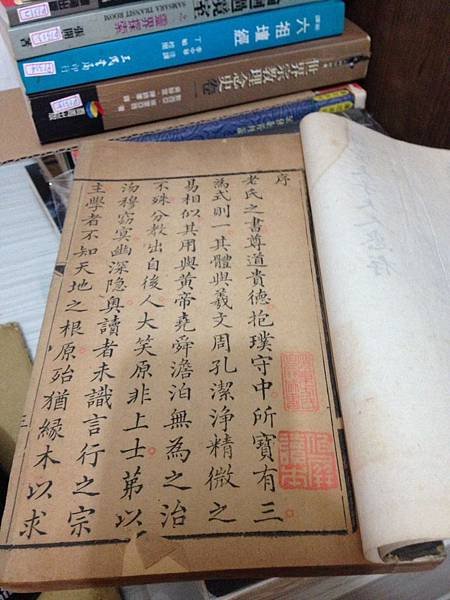 SAMSARA TRANSIT ROOM
靈界探索
六祖壇經
三民書局印行
世界宗教理念史
序
老氏之書尊道貴德抱璞守中所寶有三
為式則一其體與羲文周孔潔淨精微之
易相似其用與黃帝堯舜澹泊無為之治
不殊分教出自後人大笑原非上士弟以
沕穆窈冥幽深隐奥讀者未識言行之宗
主學者不知天地之根原殆猶緣木以求